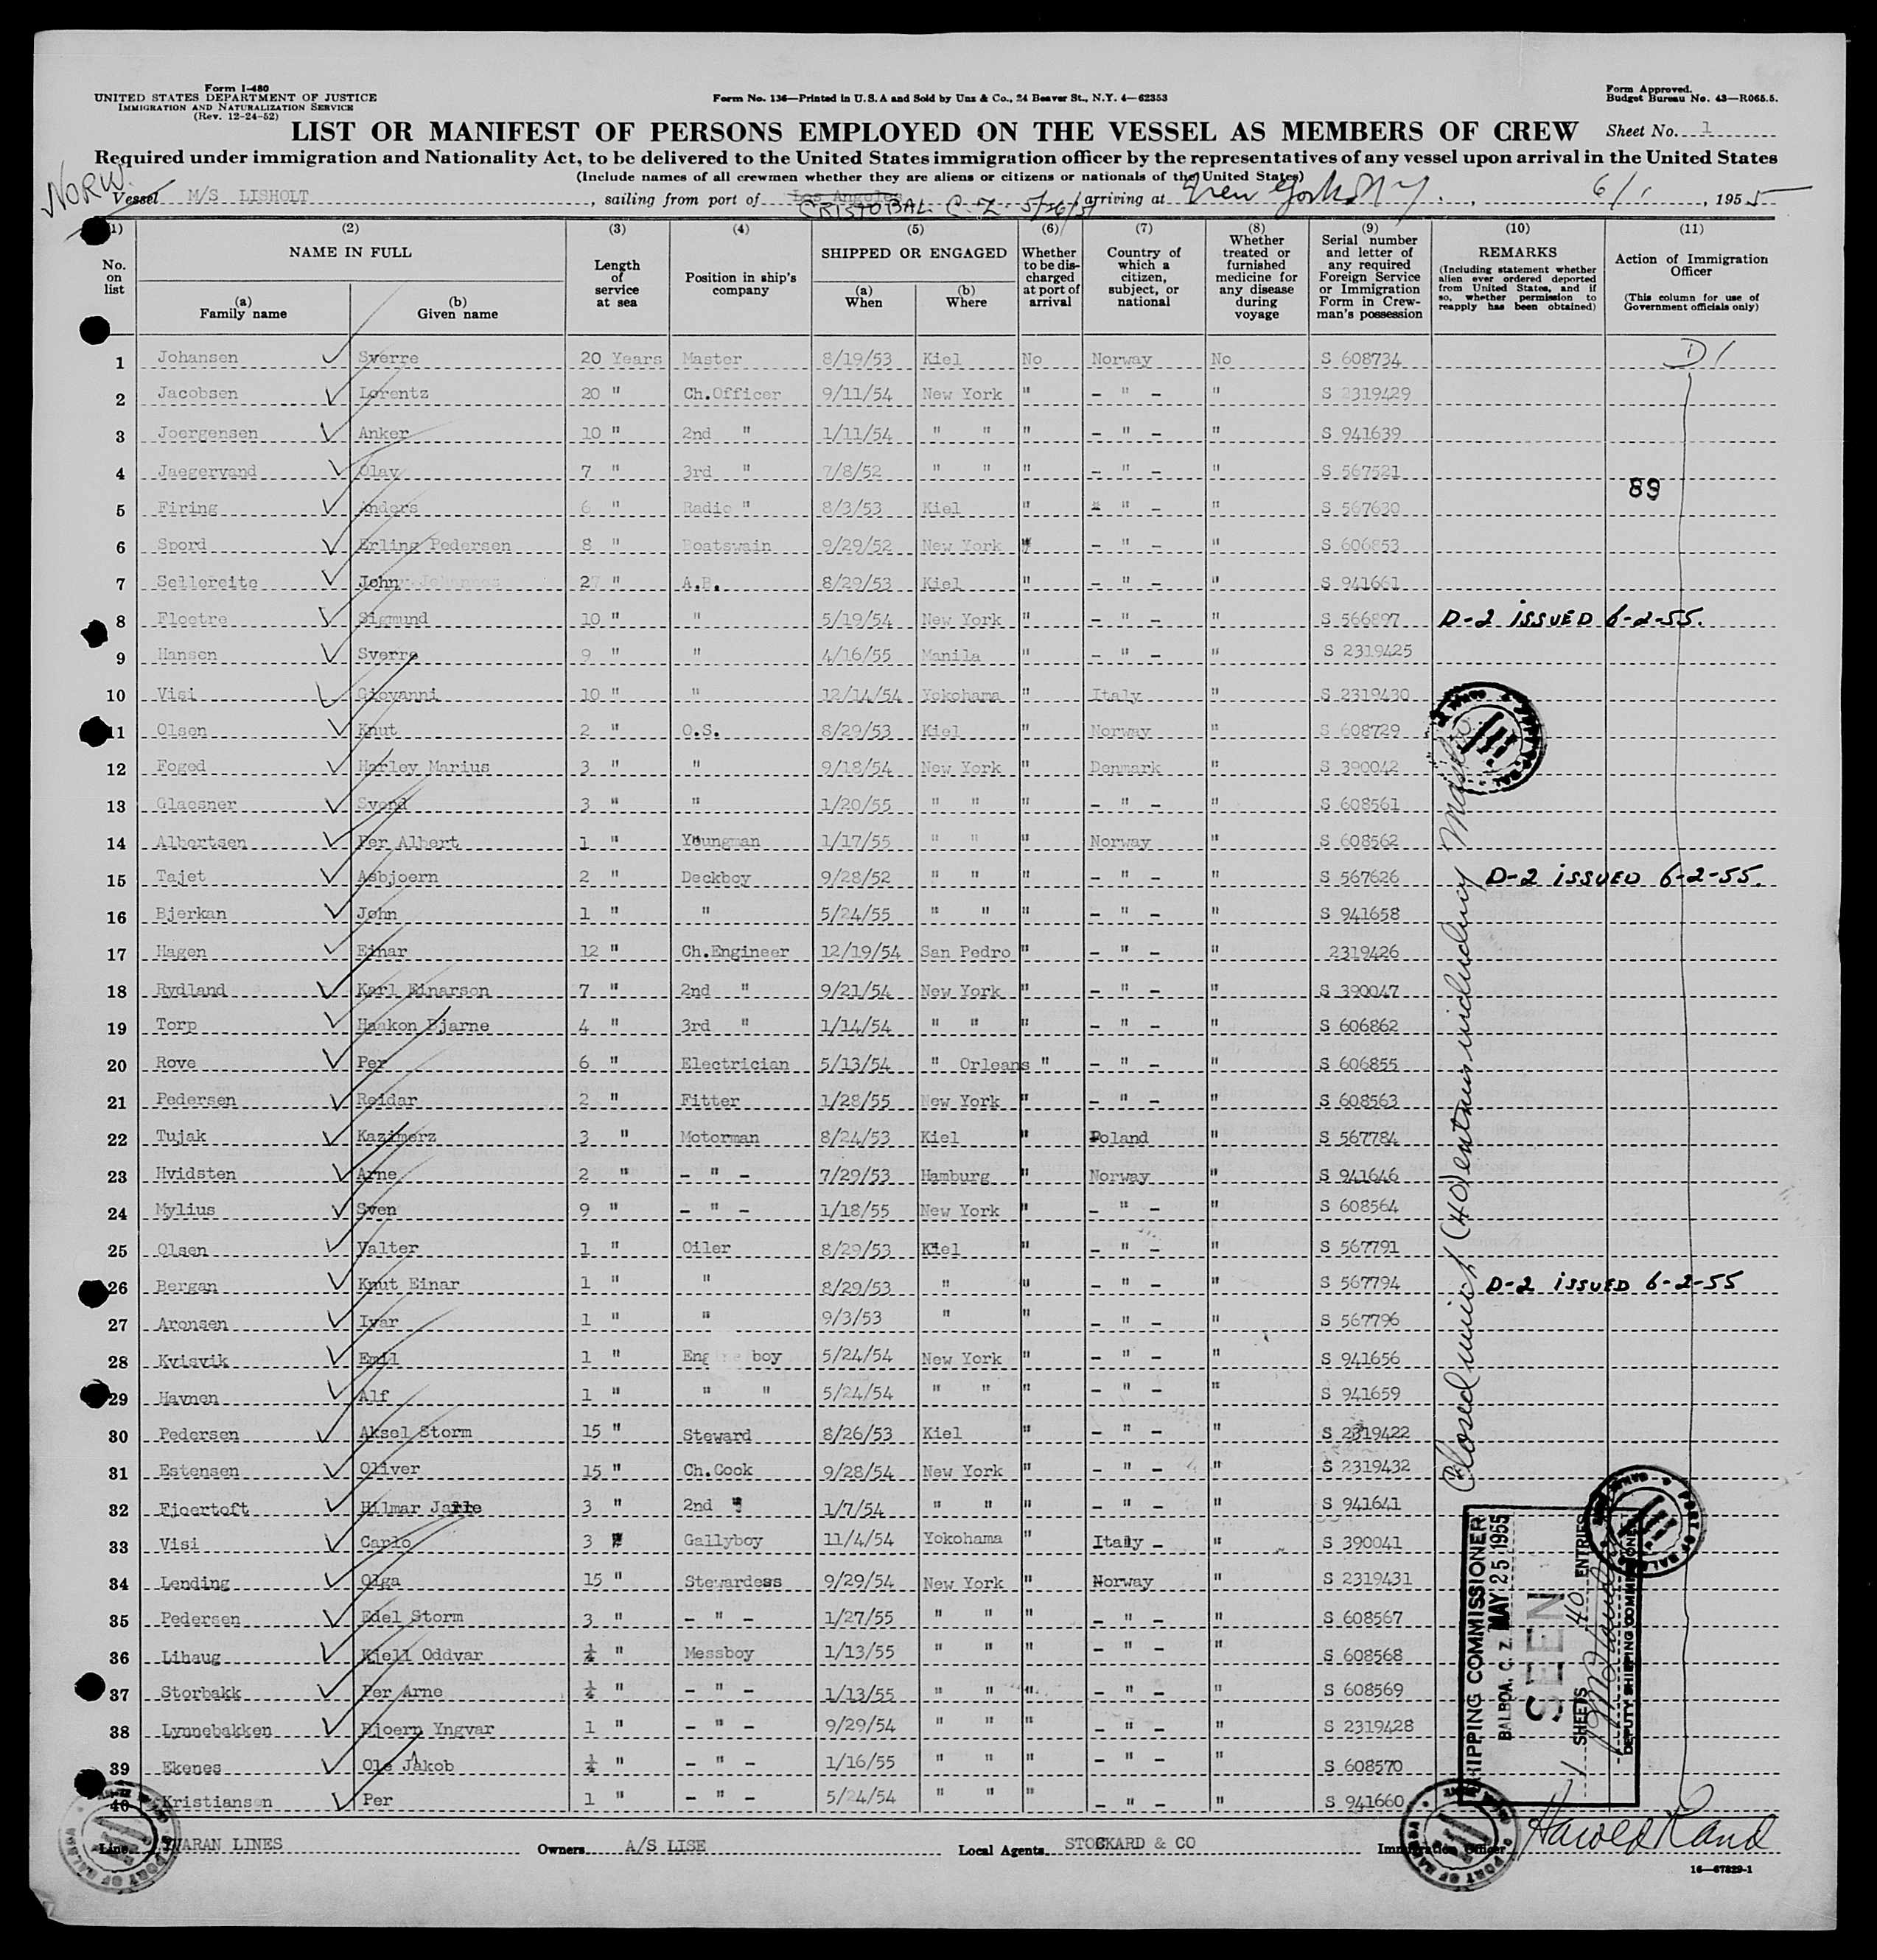 Form I-480
UNITED STATES DEPARTMENT OF JUSTICE
IMMIGRATION AND NATURALIZATION SERVICE
(Rev. 12-24-52)
Form No. 136—Printed in U.S.A and Sold by Unz & Co., 24 Beaver St., N.Y. 4—62353
Form Approved.
Budget Bureau No. 43—R065.5.
LIST OR MANIFEST OF PERSONS EMPLOYED ON THE VESSEL AS MEMBERS OF CREW
Sheet No. 1
Required under immigration and Nationality Act, to be delivered to the United States immigration officer by the representatives of any vessel upon arrival in the United States
(Include names of all crewmen whether they are aliens or citizens or nationals of the United States)
NORW.
Vessel M/S LISHOLT, sailing from port of Los Angeles CRISTOBAL C.Z. 5/26/5 arriving at New York N Y., 6/1, 1955
(1) (2) (3) (4) (5) (6) (7) (8) (9) (10) (11)
No. on list
NAME IN FULL
(a) Family name
(b) Given name
Length of service at sea
Position in ship's company
SHIPPED OR ENGAGED
(a) When
(b) Where
Whether to be discharged at port of arrival
Country of which a citizen, subject, or national
Whether treated or furnished medicine for any disease during voyage
Serial number and letter of any required Foreign Service or Immigration Form in Crewman's possession
REMARKS
(Including statement whether alien ever ordered deported from United States, and if so, whether permission to reapply has been obtained)
Action of Immigration Officer
(This column for use of Government officials only)
1 Johansen Sverre 20 Years Master 8/19/53 Kiel No Norway No S 608734 D1
2 Jacobsen Lorentz 20 " Ch.Officer 9/11/54 New York " - " - " S 2319429
3 Joergensen Anker 10 " 2nd " 1/11/54 " " " - " - " S 941639
4 Jaegervand Olav 7 " 3rd " 7/8/52 " " " - " - " S 567521
89
5 Firing Anders 6 " Radio " 8/3/53 Kiel " " - " S 567630
6 Spord Erling Pedersen 8 " Boatswain 9/29/52 New York " - " - " S 606853
7 Sellereite John Johannes 27 " A.B. 8/29/53 Kiel " - " - " S 941661
8 Floetre Sigmund 10 " " 5/19/54 New York " - " - " S 566897 D-2 ISSUED 6-2-55.
9 Hansen Sverre 9 " " 4/16/55 Manila " - " - " S 2319425
10 Visi Giovanni 10 " " 12/14/54 Yokohama " Italy " S 2319430
11 Olsen Knut 2 " O.S. 8/29/53 Kiel " Norway " S 608729
12 Foged Harley Marius 3 " " 9/18/54 New York " Denmark " S 390042
13 Glaesner Svend 3 " " 1/20/55 " " " - " - " S 608561
14 Albertsen Per Albert 1 " Youngman 1/17/55 " " " Norway " S 608562
15 Tajet Asbjoern 2 " Deckboy 9/28/52 " " " - " - " S 567626 D-2 ISSUED 6-2-55.
16 Bjerkan John 1 " " 5/24/55 " " " - " - " S 941658
17 Hagen Einar 12 " Ch.Engineer 12/19/54 San Pedro " - " - " 2319426
18 Rydland Karl Einarson 7 " 2nd " 9/21/54 New York " - " - " S 390047
19 Torp Haakon Bjarne 4 " 3rd " 1/14/54 " " " - " - " S 606862
20 Rove Per 6 " Electrician 5/13/54 " Orleans " - " - " S 606855
21 Pedersen Reidar 2 " Fitter 1/28/55 New York " - " - " S 608563
22 Tujak Kazimerz 3 " Motorman 8/24/53 Kiel " Poland " S 567784
23 Hvidsten Arne 2 " - " - 7/29/53 Hamburg " Norway " S 941646
24 Mylius Sven 9 " - " - 1/18/55 New York " - " - " S 608564
25 Olsen Valter 1 " Oiler 8/29/53 Kiel " - " - " S 567791
26 Bergan Knut Einar 1 " " 8/29/53 " " - " - " S 567794 D-2 ISSUED 6-2-55
27 Aronsen Ivar 1 " " 9/3/53 " " - " - " S 567796
28 Kvisvik Emil 1 " Eng boy 5/24/54 New York " - " - " S 941656
29 Havnen Alf 1 " " " 5/24/54 " " " - " - " S 941659
30 Pedersen Aksel Storm 15 " Steward 8/26/53 Kiel " - " - " S 2319422
31 Estensen Oliver 15 " Ch.Cook 9/28/54 New York " - " - " S 2319432
32 Fjoertoft Hilmar Jarle 3 " 2nd " 1/7/54 " " " - " - " S 941641
33 Visi Carlo 3 " Gallyboy 11/4/54 Yokohama " Italy - " S 390041
34 Lending Olga 15 " Stewardess 9/29/54 New York " Norway " S 2319431
35 Pedersen Edel Storm 3 " - " - 1/27/55 " " " - " - " S 608567
36 Lihaug Kjell Oddvar ½ " Messboy 1/13/55 " " " - " - " S 608568
37 Storbakk Per Arne ½ " - " - 1/13/55 " " " - " - " S 608569
38 Lynnebakken Bjoern Yngvar 1 " - " - 9/29/54 " " " - " - " S 2319428
39 Ekenes Ole Jakob ½ " - " - 1/16/55 " " " - " - " S 608570
40 Kristiansen Per 1 " - " - 5/24/54 " " " - " - " S 941660
Closed with (40) entries including Master
SHIPPING COMMISSIONER
BALBOA, C. Z. MAY 25 1955
SEEN
1 SHEETS 40 ENTRIES
DEPUTY SHIPPING COMMISSIONER
Line IVARAN LINES Owners A/S LISE Local Agents STOCKARD & CO Immigration Officer Harold Rand
16—67829-1